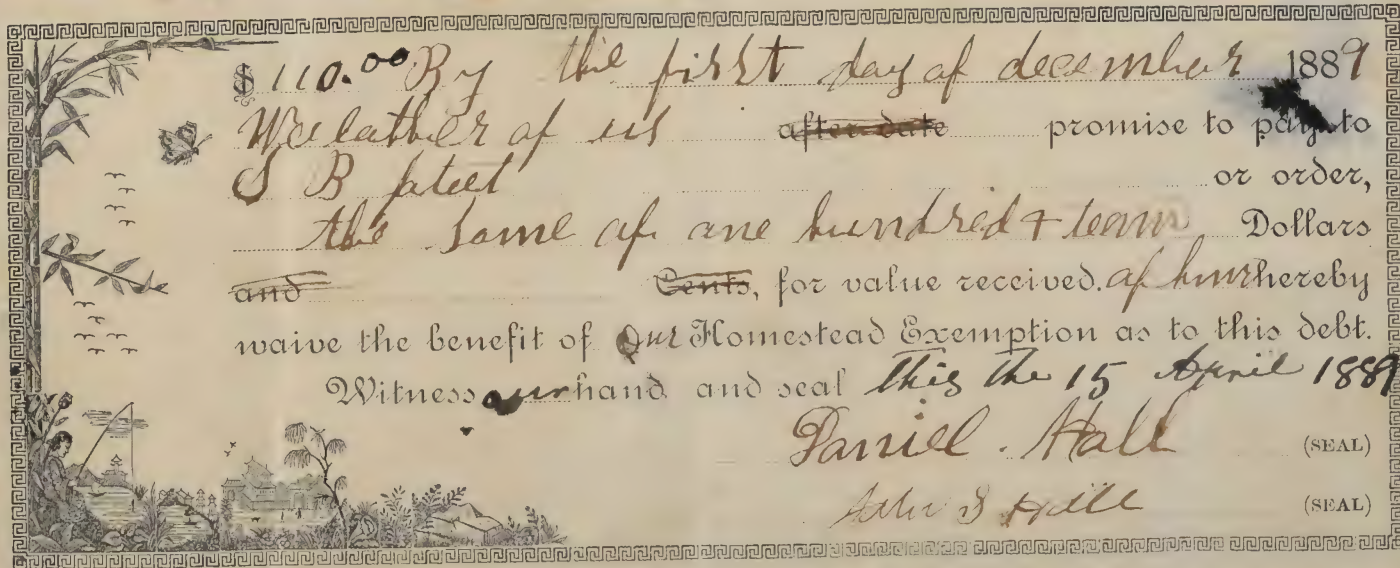 $ 110.00 By the first day of december 1889
We eather of us after date promise to pay to
S B or order,
the some of one hundred + teen Dollars
and Cents, for value received. of him hereby
waive the benefit of our Homestead Exemption as to this debt.
Witness our hand and seal this the 15 April 1889
Daniel. Hall (SEAL)
(SEAL)